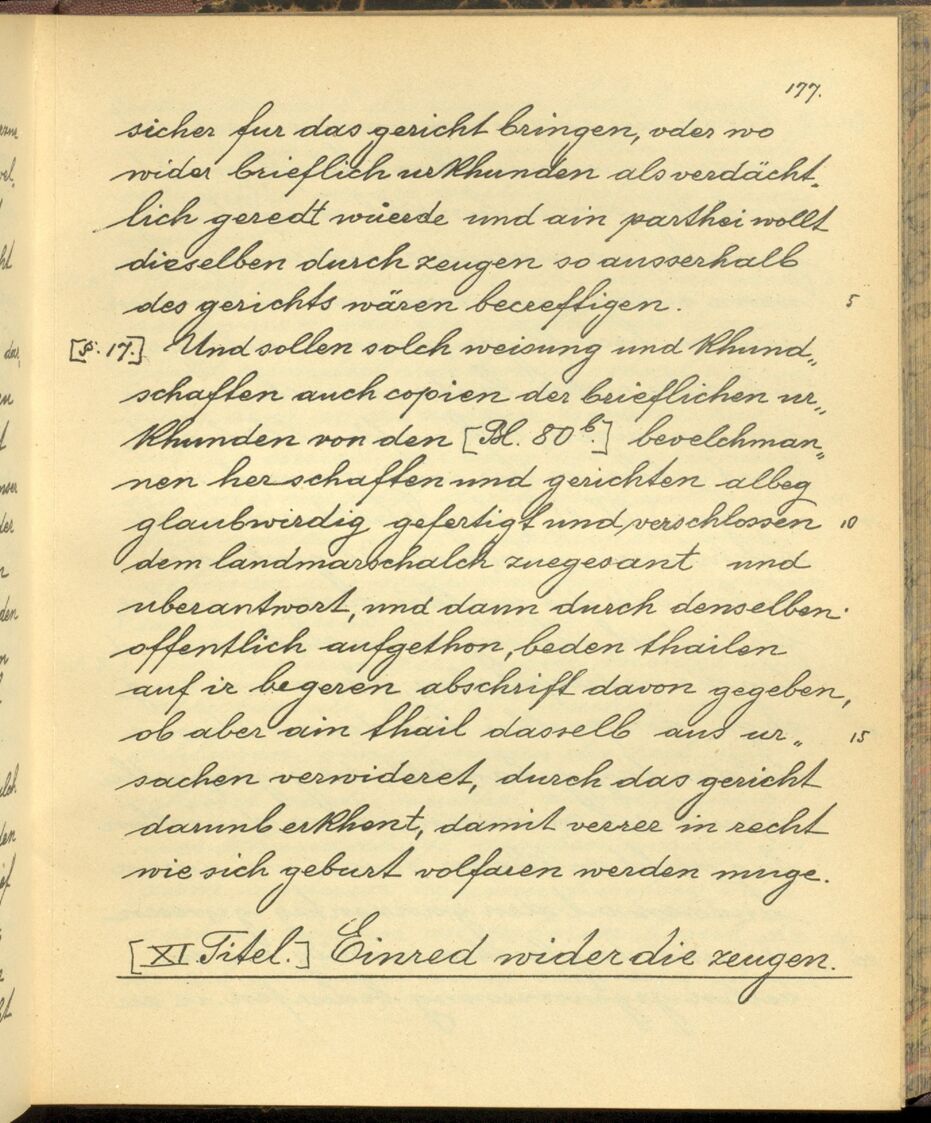 177.
sicher fur das gericht bringen, oder wo
wider brieflich urkhunden als verdächt„
lich geredt wüerde und ain parthei wollt
dieselben durch zeugen so ausserhalb
des gerichts wären becreftigen. 5
[§. 17.] Und sollen solch weisung und khund„
schaften auch copien der brieflichen ur„
khunden von den [Bl. 80b.] bevelchman„
nen herschaften und gerichten albeg
glaubwirdig gefertigt und verschlossen 10
dem landmarschalch zuegesant und
uberantwort, und dann durch denselben
offentlich aufgethon, beden thailen
auf ir begeren abschrift davon gegeben,
ob aber ain thail dasselb aus ur„ 15
sachen verwideret, durch das gericht
darumb erkhent, damit verrer in recht
wie sich geburt volfaren werden muge.
[XI. Titel.] Einred wider die zeugen.